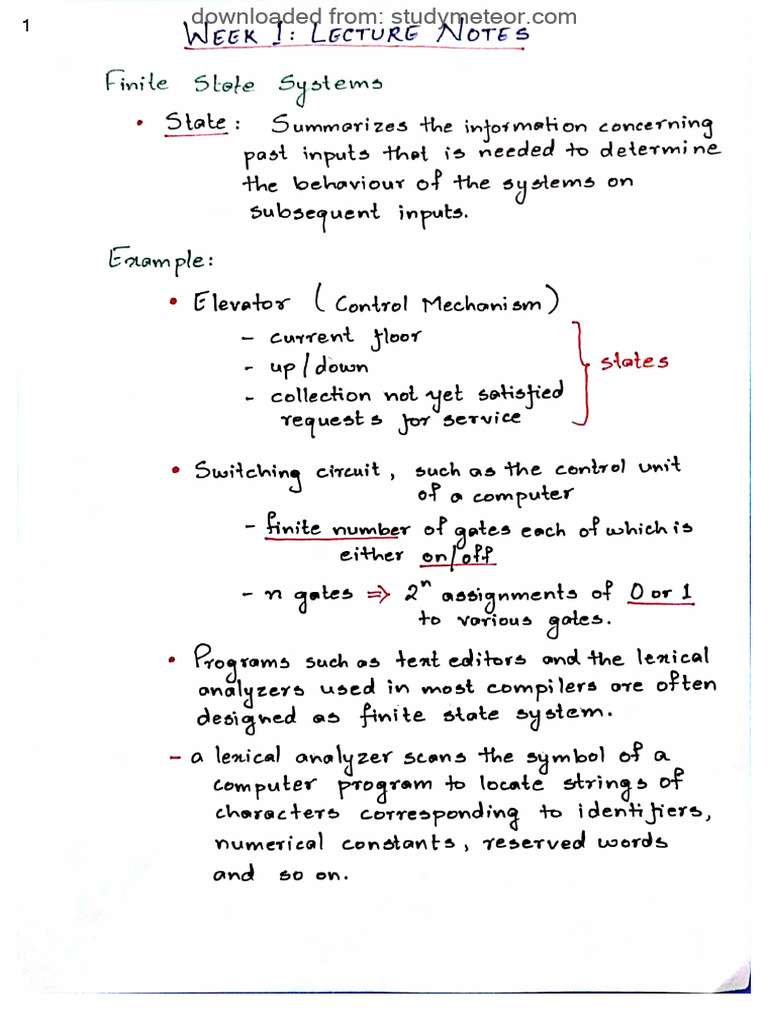 downloaded from: studymeteor.com
1
WEEK 1: LECTURE NOTES
Finite State Systems
• State: Summarizes the information concerning
past inputs that is needed to determine
the behaviour of the systems on
subsequent inputs.
Example:
• Elevator (Control Mechanism)
- current floor
- up/down
- collection not yet satisfied
requests for service
states
• Switching circuit, such as the control unit
of a computer
- finite number of gates each of which is
either on/off
- n gates ⇒ 2ⁿ assignments of 0 or 1
to various gates.
• Programs such as text editors and the lexical
analyzers used in most compilers are often
designed as finite state system.
- a lexical analyzer scans the symbol of a
computer program to locate strings of
characters corresponding to identifiers,
numerical constants, reserved words
and so on.